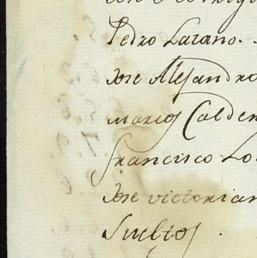 Pedro Lazano.
Jose Alejandro
Marcos Calder
Francisco Lo
Jose victorian
Sueltos.